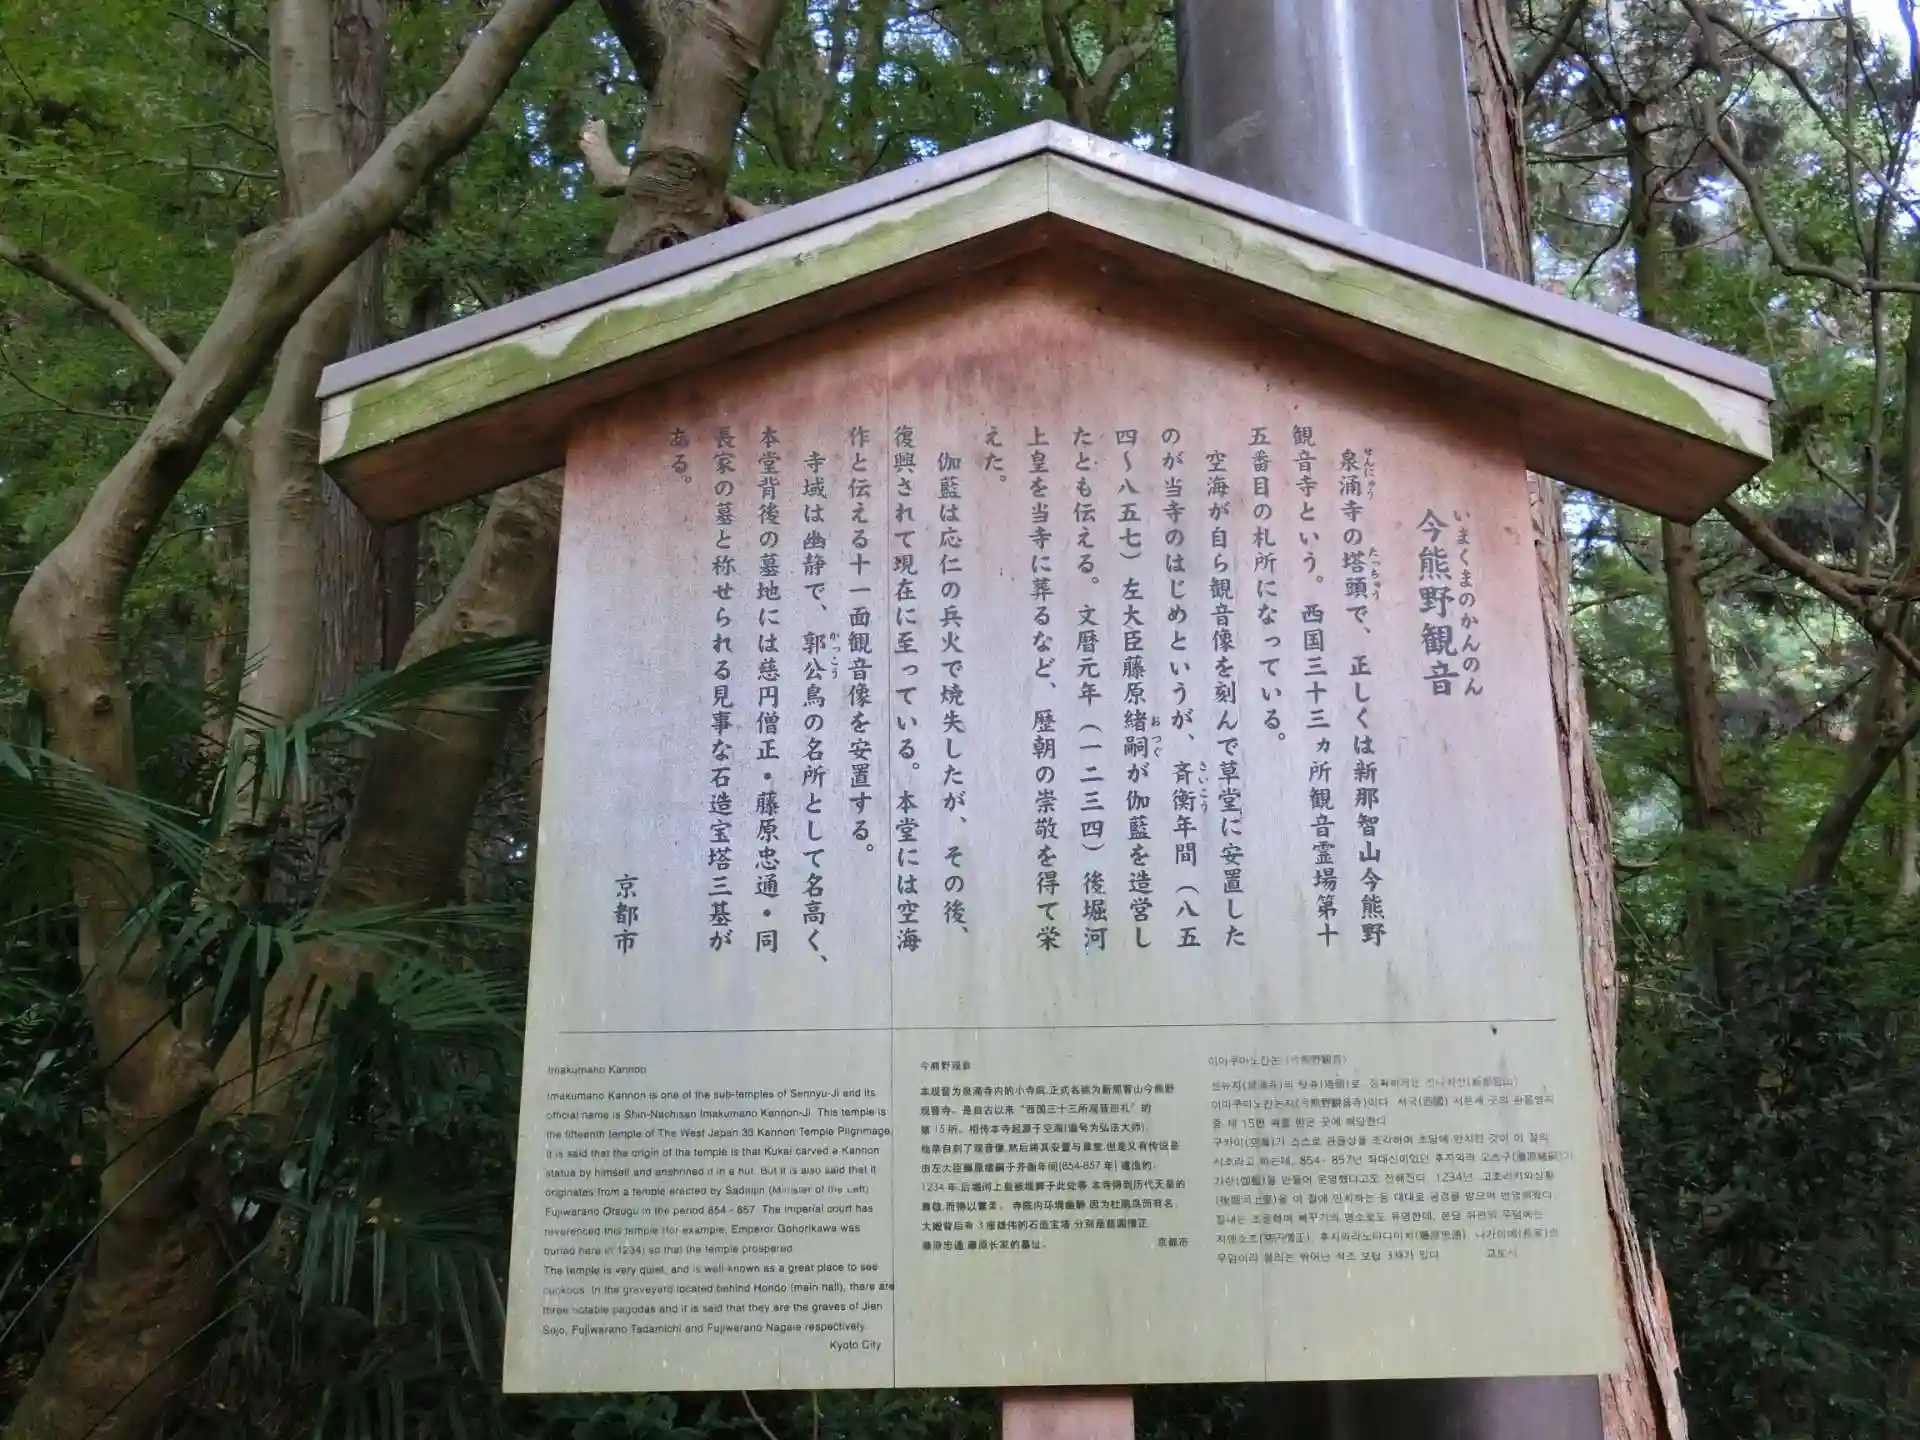 今熊野観音
いまくまのかんのん
泉涌寺の塔頭で、正しくは新那智山今熊野
せんにゅう
たっちゅう
観音寺という。西国三十三ヵ所観音霊場第十
五番目の札所になっている。
空海が自ら観音像を刻んで草堂に安置した
のが当寺のはじめというが、斉衡年間（八五
さいこう
四〜八五七）左大臣藤原緒嗣が伽藍を造営し
おつぐ
たとも伝える。文暦元年（一二三四）後堀河
上皇を当寺に葬るなど、歴朝の崇敬を得て栄
えた。
伽藍は応仁の兵火で焼失したが、その後、
復興されて現在に至っている。本堂には空海
作と伝える十一面観音像を安置する。
寺域は幽静で、郭公鳥の名所として名高く、
かっこう
本堂背後の墓地には慈円僧正・藤原忠通・同
長家の墓と称せられる見事な石造宝塔三基が
ある。
京都市
Imakumano Kannon
Imakumano Kannon is one of the sub-temples of Sennyu-Ji and its
official name is Shin-Nachisan Imakumano Kannon-Ji. This temple is
the fifteenth temple of The West Japan 33 Kannon Temple Pilgrimage.
It is said that the origin of the temple is that Kukai carved a Kannon
statue by himself and enshrined it in a hut. But it is also said that it
originates from a temple erected by Sadaijin (Minister of the Left)
Fujiwarano Otsugu in the period 854 - 857. The imperial court has
reverenced this temple (for example, Emperor Gohorikawa was
buried here in 1234) so that the temple prospered.
The temple is very quiet, and is well-known as a great place to see
cuckoos. In the graveyard located behind Hondo (main hall), there are
three notable pagodas and it is said that they are the graves of Jien
Sojo, Fujiwarano Tadamichi and Fujiwarano Nagaie respectively.
Kyoto City
今熊野观音
本观音为泉涌寺内的小寺院,正式名称为新那智山今熊野
观音寺。是自古以来“西国三十三所观音巡礼”的
第15所。相传本寺起源于空海(谥号为弘法大师)
他亲自刻了观音像,然后将其安置与草堂,但是又有传说是
由左大臣藤原绪嗣于齐衡年间(854-857年)建造的。
1234年,后堀河上皇被埋葬于此处等,本寺得到历代天皇的
尊敬,而得以繁荣。寺院内环境幽静,因为杜鹃鸟而有名。
大殿背后有3座雄伟的石造宝塔,分别是慈圆僧正、
藤原忠通,藤原长家的墓址。
京都市
이마쿠마노칸논 (今熊野観音)
센뉴지(泉涌寺)의 탓츄(塔頭)로 정확하게는 신나치산(新那智山)
이마쿠마노칸논지(今熊野観音寺)이다. 서국(西國) 서른세 곳의 관음영지
중 제 15번 패를 받은 곳에 해당한다.
구카이(空海)가 스스로 관음상을 조각하여 초당에 안치한 것이 이 절의
시초라고 하는데, 854-857년 좌대신이었던 후지와라 오츠구(藤原緒嗣)가
가람(伽藍)을 만들어 운영했다고도 전해진다. 1234년 고호리카와상황
(後堀河上皇)을 이 절에 안치하는 등 대대로 공경을 받으며 번영해왔다.
절내는 조용하며 뻐꾸기의 명소로도 유명한데, 본당 뒤편의 무덤에는
지엔소조(慈円僧正), 후지와라노타다미치(藤原忠通), 나가이에(長家)의
무덤이라 불리는 뛰어난 석조 보탑 3채가 있다.
교토시